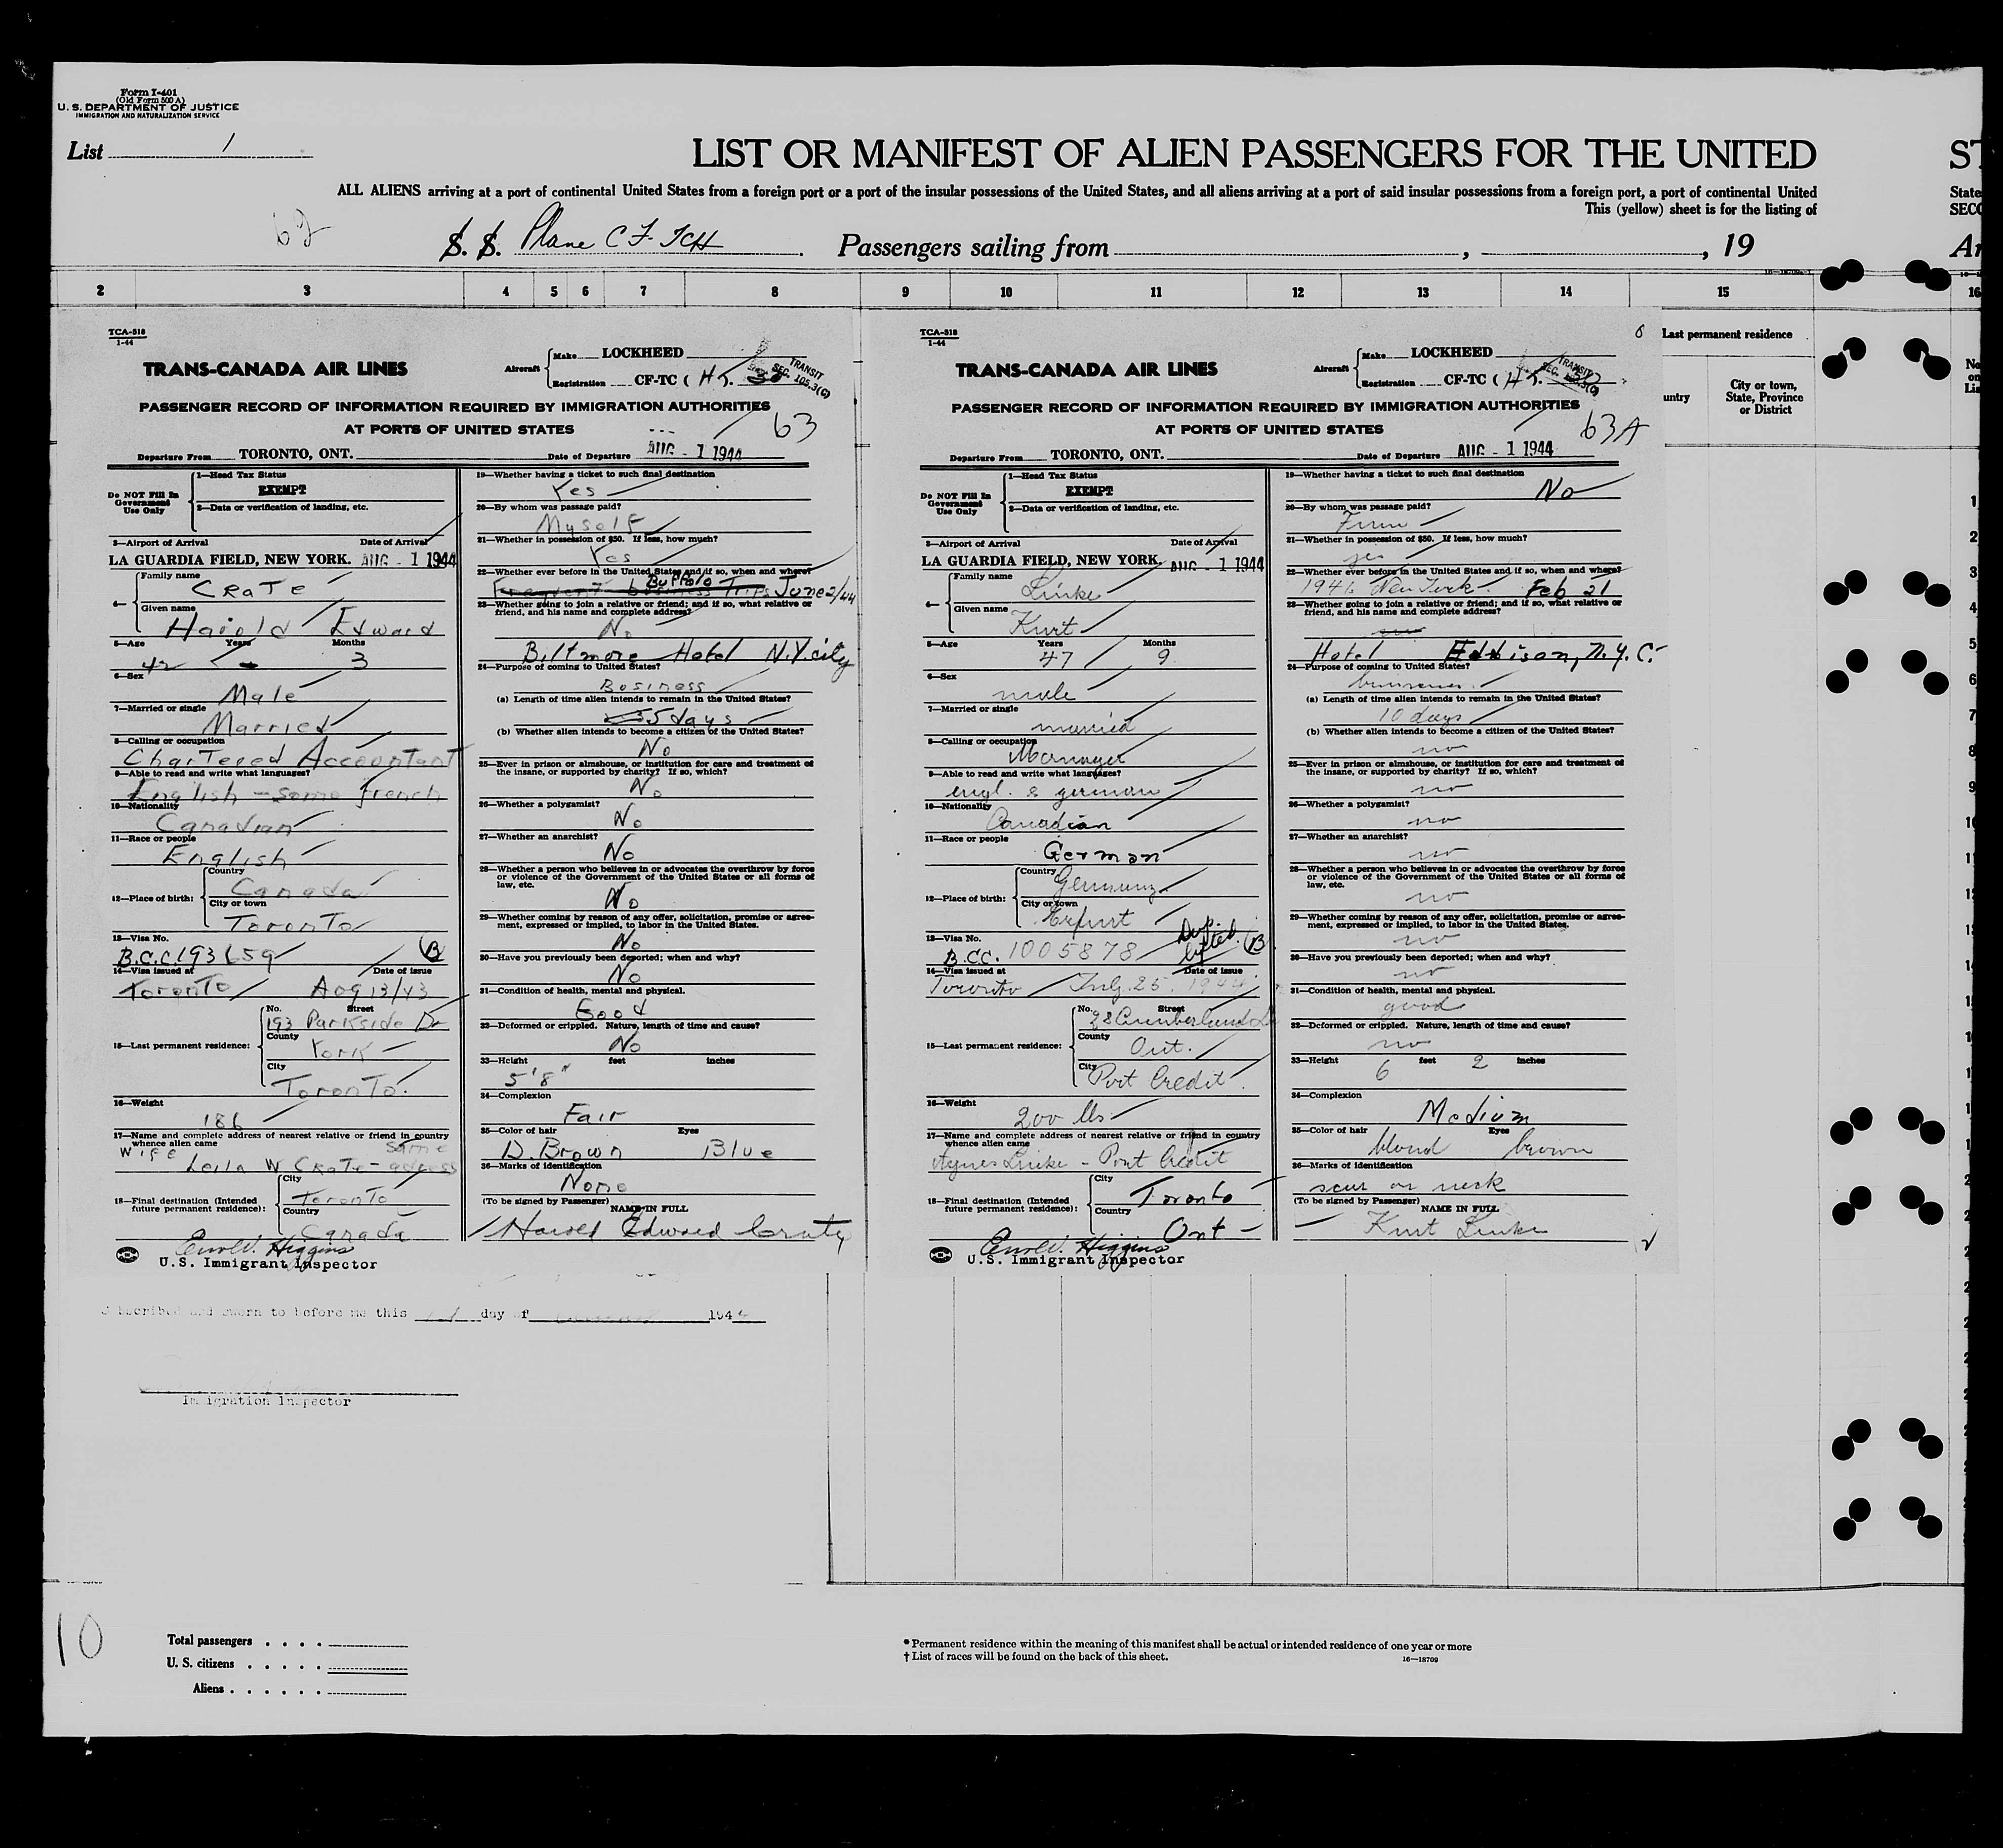 Form I-401
(Old Form 500 A)
U. S. DEPARTMENT OF JUSTICE
IMMIGRATION AND NATURALIZATION SERVICE
List 1
LIST OR MANIFEST OF ALIEN PASSENGERS FOR THE UNITED
ST
ALL ALIENS arriving at a port of continental United States from a foreign port or a port of the insular possessions of the United States, and all aliens arriving at a port of said insular possessions from a foreign port, a port of continental United
State
This (yellow) sheet is for the listing of
SECO
S. S. Plane CF-TCH Passengers sailing from , , 19
Ar
2 3 4 5 6 7 8 9 10 11 12 13 14 15 16
Last permanent residence
untry
City or town,
State, Province
or District
No
on
Lis
TCA-518
1-44
TRANS-CANADA AIR LINES
Aircraft
Make LOCKHEED
Registration CF-TC ( H
TRANSIT
SEC. 105.3(C)
PASSENGER RECORD OF INFORMATION REQUIRED BY IMMIGRATION AUTHORITIES
AT PORTS OF UNITED STATES
63
Departure From TORONTO, ONT. Date of Departure AUG - 1 1944
Do NOT Fill In
Government
Use Only
1—Head Tax Status
EXEMPT
2—Data or verification of landing, etc.
3—Airport of Arrival Date of Arrival
LA GUARDIA FIELD, NEW YORK. AUG - 1 1944
4—
Family name
Crate
Given name
Harold Edward
5—Age Years Months
42 3
6—Sex
Male
7—Married or single
Married
8—Calling or occupation
Chartered Accountant
9—Able to read and write what languages?
English - some french
10—Nationality
Canadian
11—Race or people
English
12—Place of birth:
Country
Canada
City or town
Toronto
13—Visa No.
B.C.C. 193659 B
14—Visa issued at Date of issue
Toronto Aug 13/43
15—Last permanent residence:
No. Street
193 Parkside Dr
County
York
City
Toronto.
16—Weight
186
17—Name and complete address of nearest relative or friend in country
whence alien came
Wife same
Leila W Crate - address
18—Final destination (Intended
future permanent residence):
City
Toronto
Country
Canada
Higgins
U.S. Immigrant Inspector
19—Whether having a ticket to such final destination
Yes
20—By whom was passage paid?
Myself
21—Whether in possession of $50. If less, how much?
Yes
22—Whether ever before in the United States and if so, when and where?
Frequent business Trips Buffalo June 2/44
23—Whether going to join a relative or friend; and if so, what relative or
friend, and his name and complete address?
No
Biltmore Hotel N.Y. city
24—Purpose of coming to United States?
Business
(a) Length of time alien intends to remain in the United States?
5 days
(b) Whether alien intends to become a citizen of the United States?
No
25—Ever in prison or almshouse, or institution for care and treatment of
the insane, or supported by charity? If so, which?
No
26—Whether a polygamist?
No
27—Whether an anarchist?
No
28—Whether a person who believes in or advocates the overthrow by force
or violence of the Government of the United States or all forms of
law, etc.
No
29—Whether coming by reason of any offer, solicitation, promise or agree-
ment, expressed or implied, to labor in the United States.
No
30—Have you previously been deported; when and why?
No
31—Condition of health, mental and physical.
Good
32—Deformed or crippled. Nature, length of time and cause?
No
33—Height feet inches
5'8"
34—Complexion
Fair
35—Color of hair Eyes
D. Brown Blue
36—Marks of identification
None
(To be signed by Passenger) NAME IN FULL
Harold Edward Crate
TCA-518
1-44
TRANS-CANADA AIR LINES
Aircraft
Make LOCKHEED
Registration CF-TC ( H
TRANSIT
PASSENGER RECORD OF INFORMATION REQUIRED BY IMMIGRATION AUTHORITIES
AT PORTS OF UNITED STATES
63A
Departure From TORONTO, ONT. Date of Departure AUG - 1 1944
Do NOT Fill In
Government
Use Only
1—Head Tax Status
EXEMPT
2—Data or verification of landing, etc.
3—Airport of Arrival Date of Arrival
LA GUARDIA FIELD, NEW YORK. AUG - 1 1944
4—
Family name
Linke
Given name
Kurt
5—Age Years Months
47 9
6—Sex
male
7—Married or single
married
8—Calling or occupation
Manager
9—Able to read and write what languages?
engl. & german
10—Nationality
Canadian
11—Race or people
German
12—Place of birth:
Country
Germany
City or town
Erfurt
13—Visa No.
B.CC. 1005878 Dup. lifted. B
14—Visa issued at Date of issue
Toronto July 25. 1944
15—Last permanent residence:
No. Street
28 Cumberland Dr
County
Ont.
City
Port Credit.
16—Weight
200 lbs
17—Name and complete address of nearest relative or friend in country
whence alien came
Agnes Linke - Port Credit
18—Final destination (Intended
future permanent residence):
City
Toronto
Country
Ont
Higgins
U.S. Immigrant Inspector
19—Whether having a ticket to such final destination
No
20—By whom was passage paid?
Firm
21—Whether in possession of $50. If less, how much?
yes
22—Whether ever before in the United States and if so, when and where?
1941 New York. Feb 21
23—Whether going to join a relative or friend; and if so, what relative or
friend, and his name and complete address?
Hotel Eddison, N.Y.C.
24—Purpose of coming to United States?
business.
(a) Length of time alien intends to remain in the United States?
10 days
(b) Whether alien intends to become a citizen of the United States?
no
25—Ever in prison or almshouse, or institution for care and treatment of
the insane, or supported by charity? If so, which?
no
26—Whether a polygamist?
no
27—Whether an anarchist?
no
28—Whether a person who believes in or advocates the overthrow by force
or violence of the Government of the United States or all forms of
law, etc.
no
29—Whether coming by reason of any offer, solicitation, promise or agree-
ment, expressed or implied, to labor in the United States.
no
30—Have you previously been deported; when and why?
no
31—Condition of health, mental and physical.
good
32—Deformed or crippled. Nature, length of time and cause?
no
33—Height feet inches
6 2
34—Complexion
Medium
35—Color of hair Eyes
blond brown
36—Marks of identification
scar on neck
(To be signed by Passenger) NAME IN FULL
Kurt Linke
Subscribed and sworn to before me this day of 194
Immigration Inspector
10
Total passengers
U. S. citizens
Aliens
* Permanent residence within the meaning of this manifest shall be actual or intended residence of one year or more
† List of races will be found on the back of this sheet.
16—18709